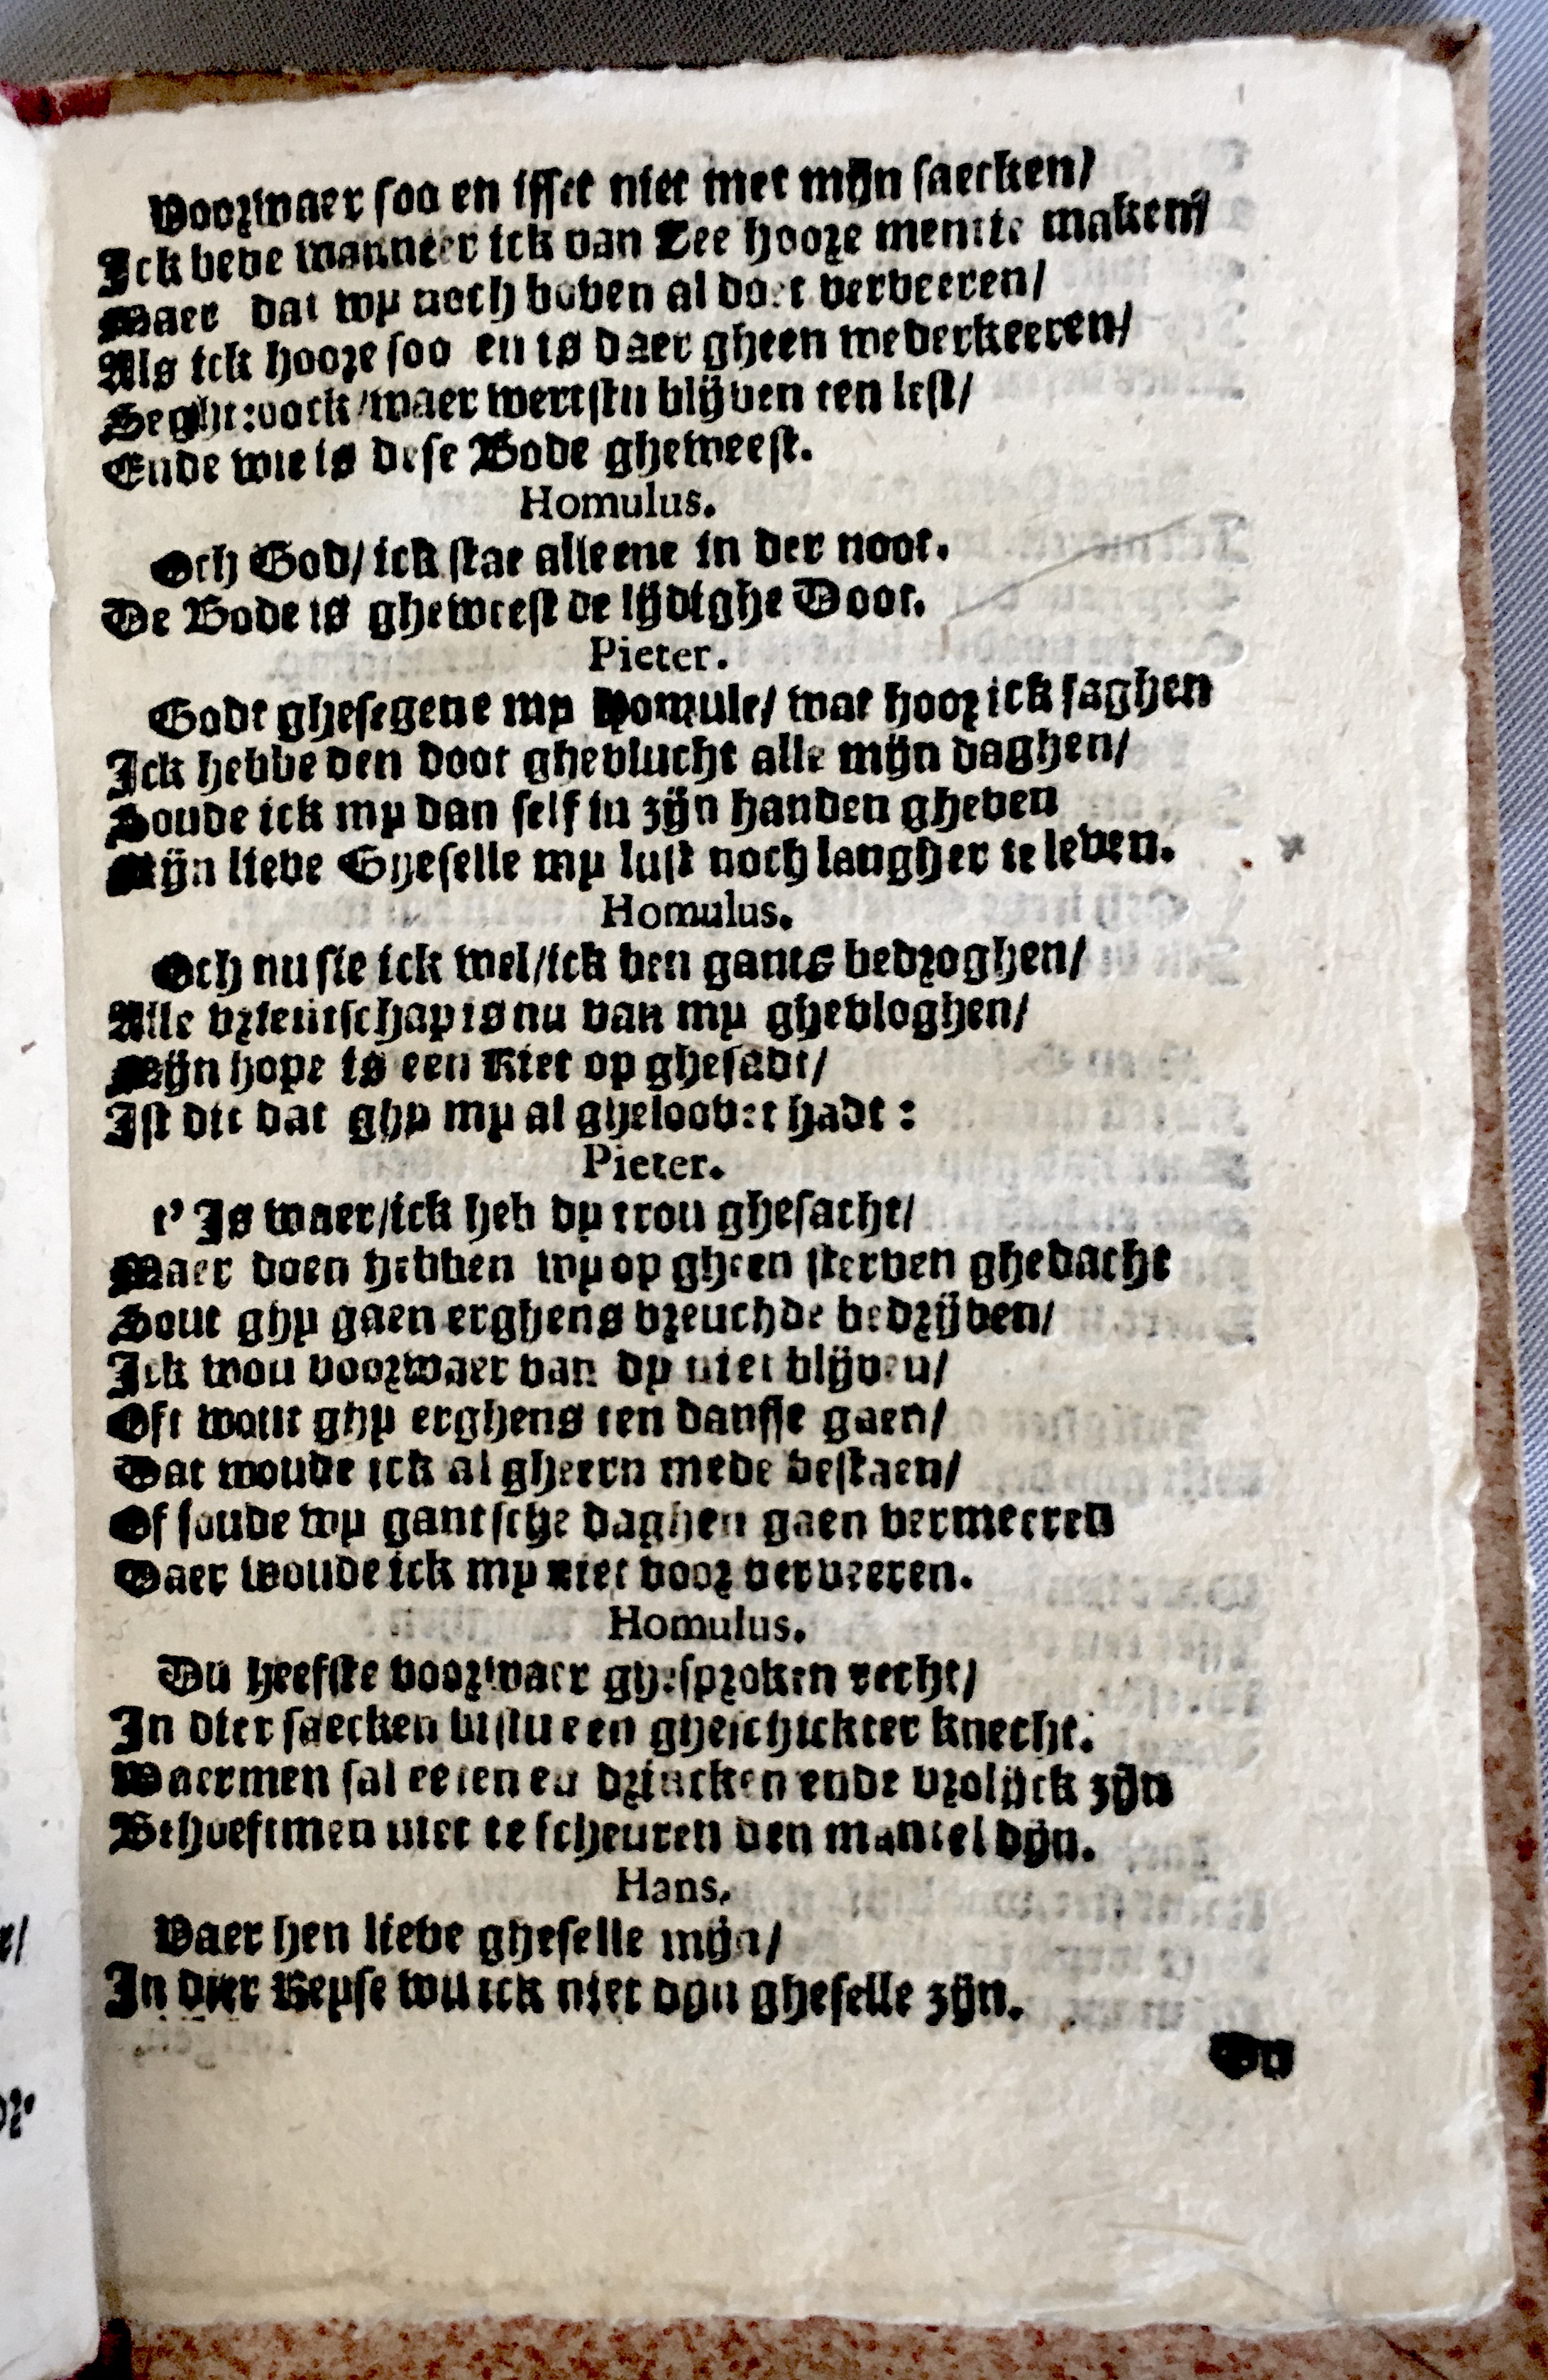 Voorwaer soo en isset niet met mijn saecken/
Ick beve wanneer ick van Zee hoore mentie maken/
Maer dat my noch boven al doet verveeren/
Als ick hoore soo en is daer gheen wederkeeren/
Seght: oock/waer wertstu blijven ten lest/
Ende wie is dese Bode gheweest.
Homulus.
Och God/ ick stae alleene in der noot.
De Bode is gheweest de lijdighe Doot.
Pieter.
Godt ghesegene my Homule/ wat hoor ick saghen
Ick hebbe den doot ghevlucht alle mijn daghen/
Soude ick my dan self in zijn handen gheven
Mijn lieve Gheselle my lust noch langher te leven.
Homulus.
Och nu sie ick wel/ick ben gants bedroghen/
Alle vrientschap is nu van my ghevloghen/
Mijn hope is een Riet op ghesadt/
Ist dit dat ghy my al ghelovet hadt:
Pieter.
t' Is waer/ick heb dy trou ghesacht/
Maer doen hebben wy op gheen sterven ghedacht
Sout ghy gaen erghens vreuchde bedrijven/
Ick wou voorwaer van dy niet blijven/
Oft wout ghy erghens ten dansse gaen/
Dat woude ick al gheern mede bestaen/
Of soude wy gantsche daghen gaen vermeeren
Daer woude ick my niet voor verveeren.
Homulus.
Du heefste voorwaer ghesproken recht/
In dier saecken bistu een gheschickter knecht.
Waermen sal eeten en drincken ende vrolijck zijn
Behoeftmen niet te scheuren den mantel dijn.
Hans.
Vaer hen lieve gheselle mijn/
In dier Reyse wil ick niet dijn gheselle zijn.
Du